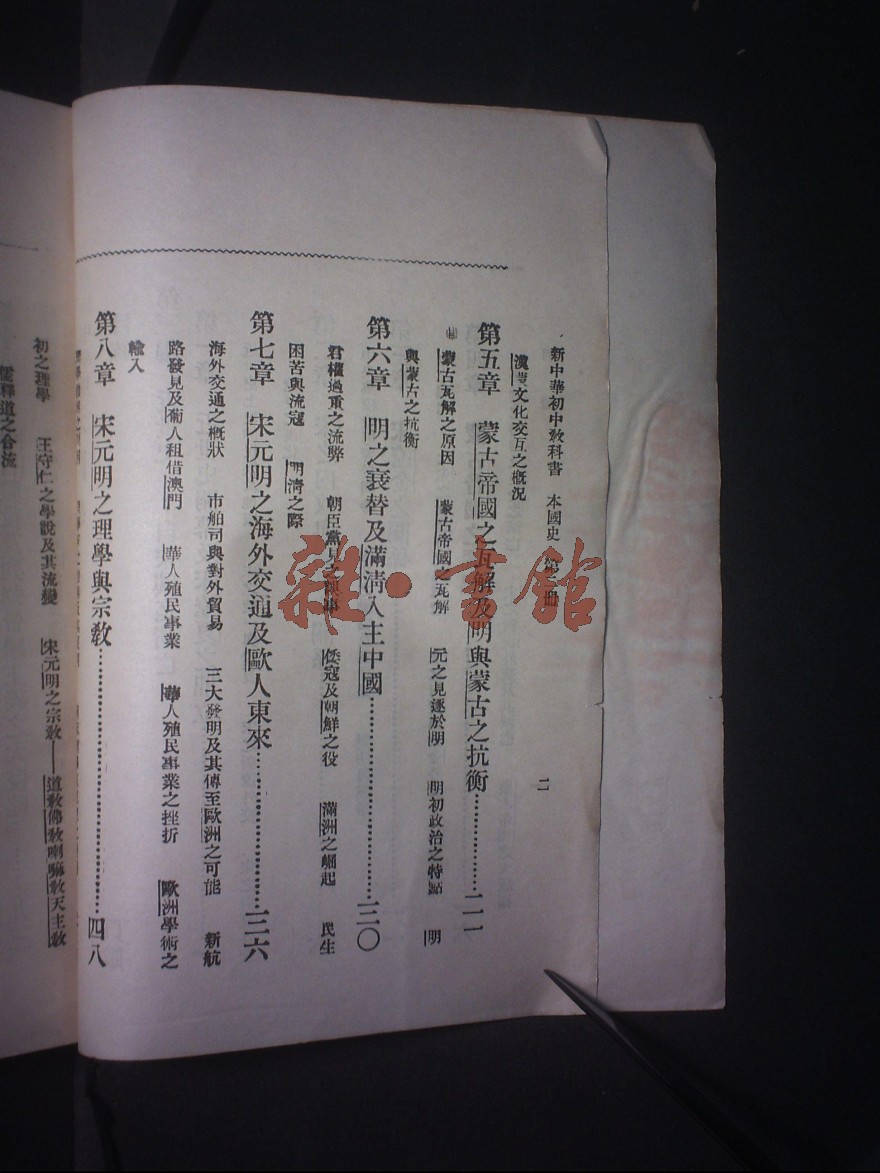 新中華初中敎科書 本國史 第 冊 二
漢 文化交互之概況
第五章 蒙古帝國之瓦解及明與蒙古之抗衡……………二一
蒙古瓦解之原因 蒙古帝國之瓦解 元之見逐於明 明初政治之特點 明
與蒙古之抗衡
第六章 明之衰替及滿淸入主中國……………三〇
君權過重之流弊 朝臣黨見之 倭寇及朝鮮之役 滿洲之崛起 民生
困苦與流寇 明淸之際
第七章 宋元明之海外交通及歐人東來……………三六
海外交通之槪狀 市舶司與對外貿易 三大發明及其傳至歐洲之可能 新航
路發見及葡人租借澳門 華人殖民事業 華人殖民事業之挫折 歐洲學術之
輸入
第八章 宋元明之理學與宗敎……………四八
初之理學 王守仁之學說及其流變 宋元明之宗敎——道敎佛敎喇嘛敎天主敎
儒釋道之合流
雜·書館